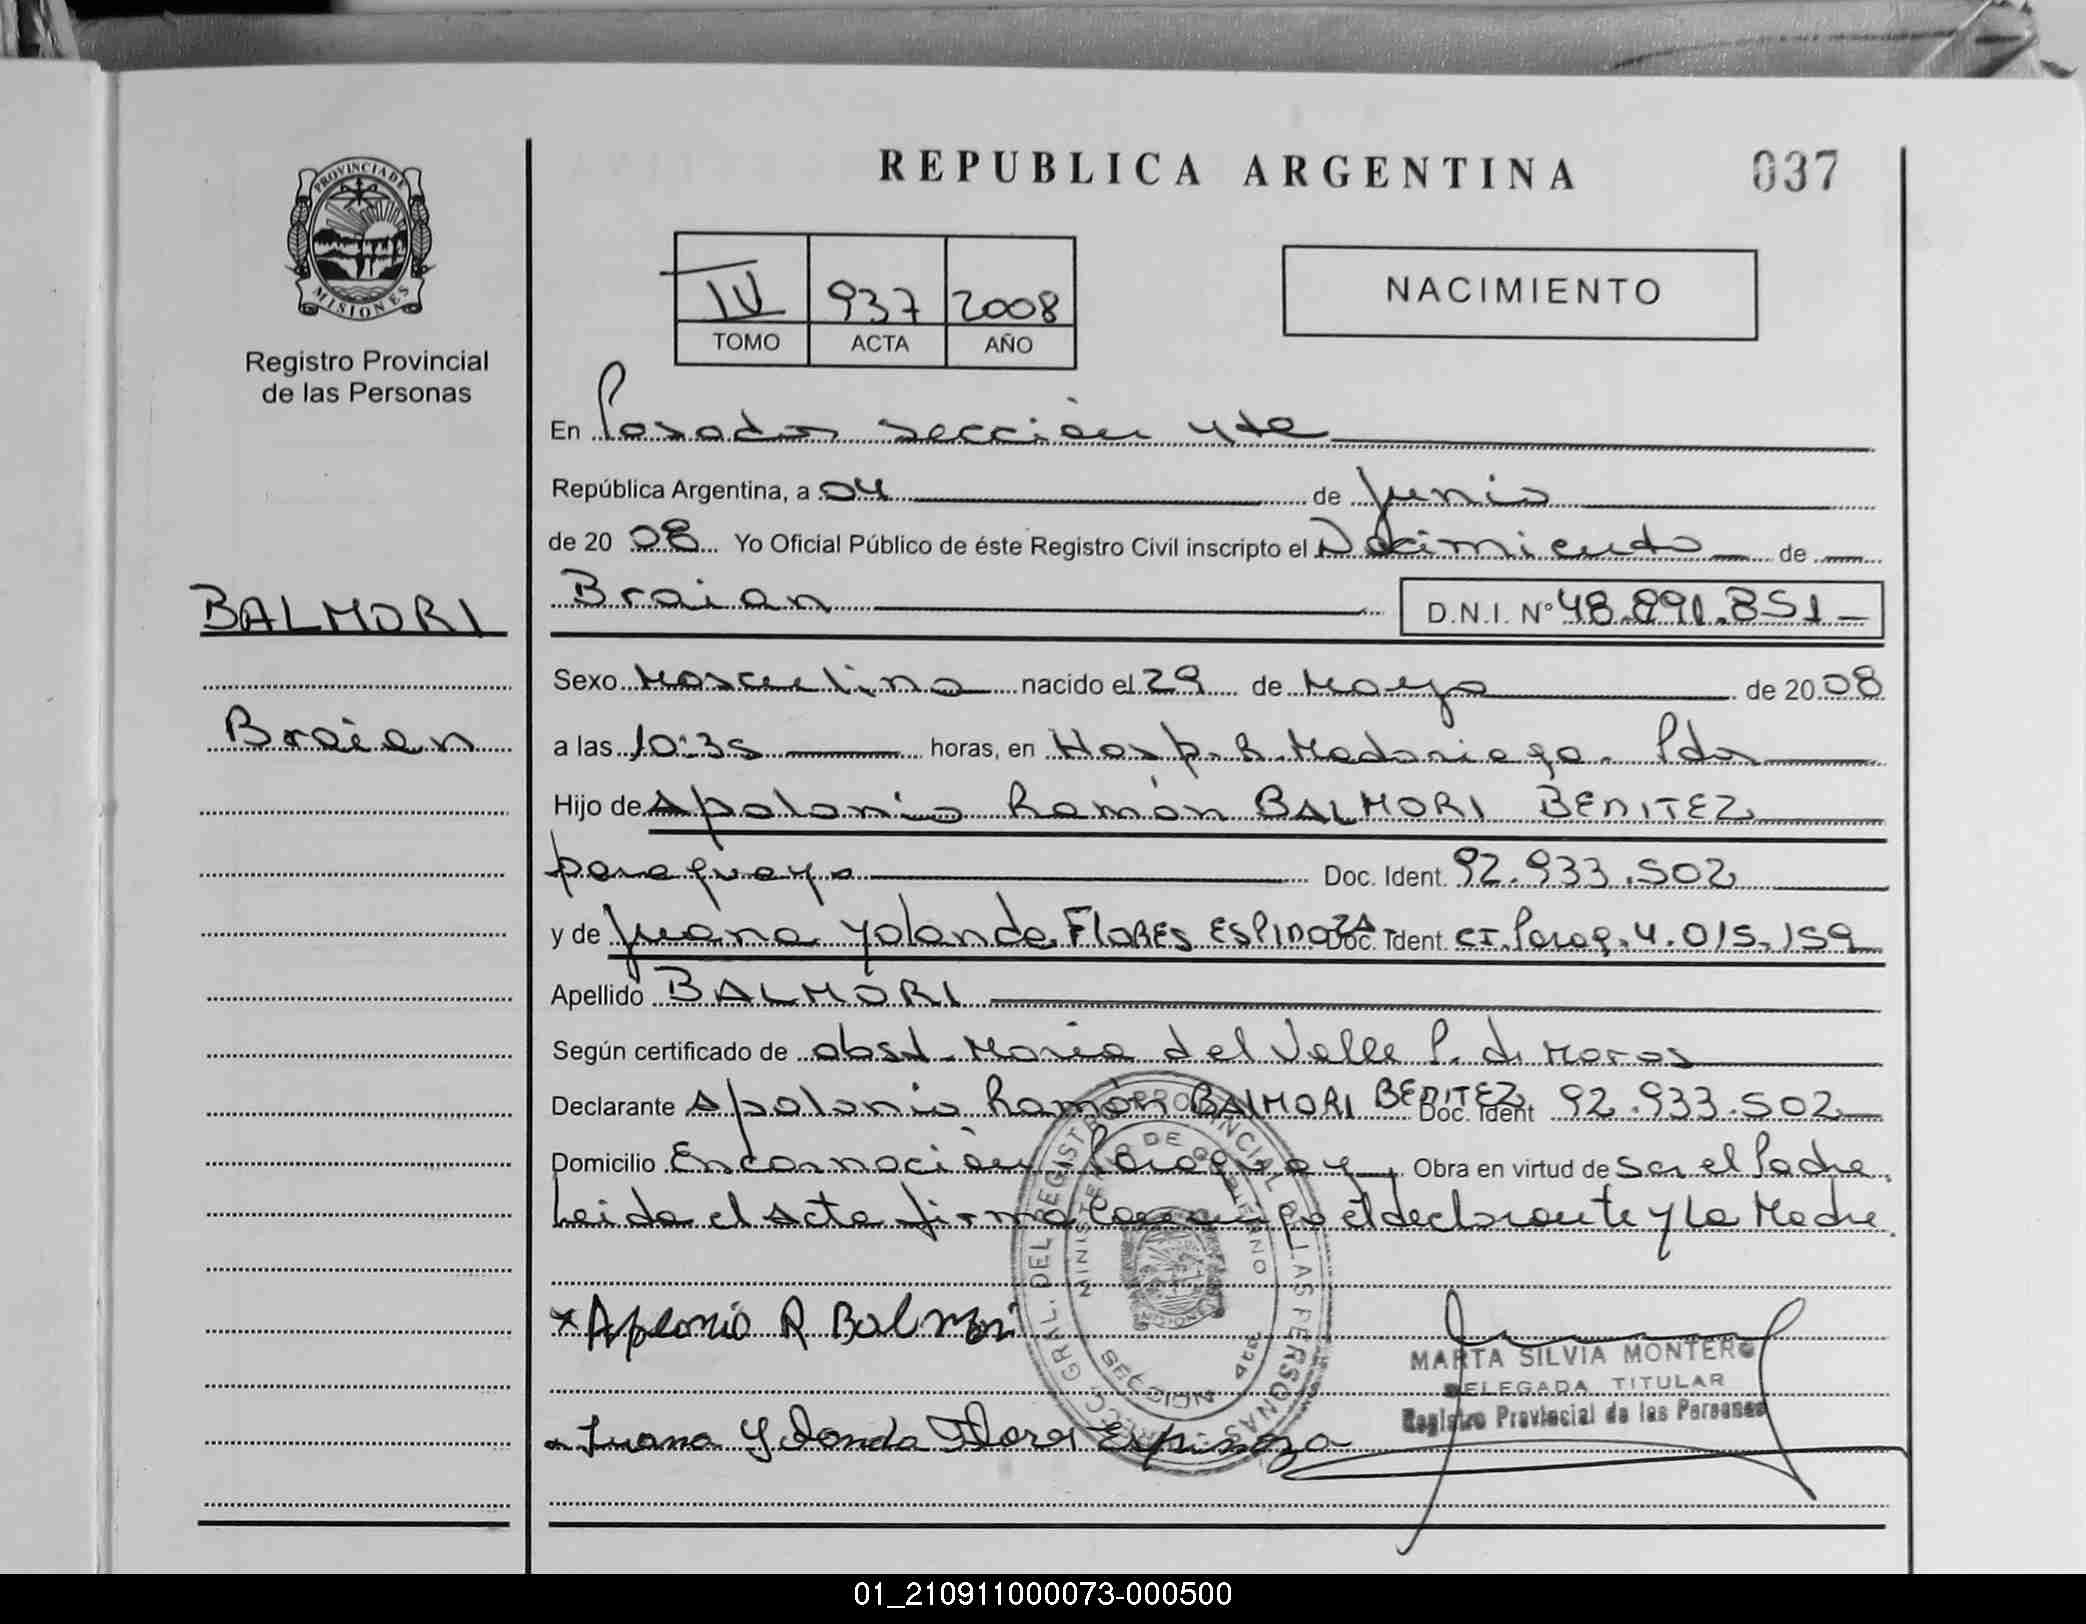 REPUBLICA ARGENTINA
037
PROVINCIA DE
MISIONES
Registro Provincial
de las Personas
IV 937 2008
TOMO ACTA AÑO
NACIMIENTO
En Posadas Sección 4ta
República Argentina, a 04 de Junio
de 20 08 Yo Oficial Público de éste Registro Civil inscripto el Nacimiento de
Braian D.N.I. Nº 48.891.851
BALMORI
Braian
Sexo Masculino nacido el 29 de Mayo de 20 08
a las 10:35 horas, en Hosp. R. Madariaga. Pdas
Hijo de Apolonio Ramón BALMORI BENITEZ
paraguayo Doc. Ident. 92.933.502
y de Juana Yolanda FLORES ESPINOZA Doc. Ident CI. Parag. 4.015.159
Apellido BALMORI
Según certificado de obst. Maria del Valle P. de Moras
Declarante Apolonio Ramón BALMORI BENITEZ Doc. Ident 92.933.502
Domicilio Encarnación Paraguay Obra en virtud de ser el Padre.
Leida el Acta firma Conmigo el declarante y La Madre.
DIRECC. GRAL. DEL REGISTRO PROVINCIAL DE LAS PERSONAS
MINISTERIO DE GOBIERNO
* Apolonio R Balmori
Juana Yolanda Flores Espinoza
MARTA SILVIA MONTERO
DELEGADA TITULAR
Registro Provincial de las Personas
01_210911000073-000500